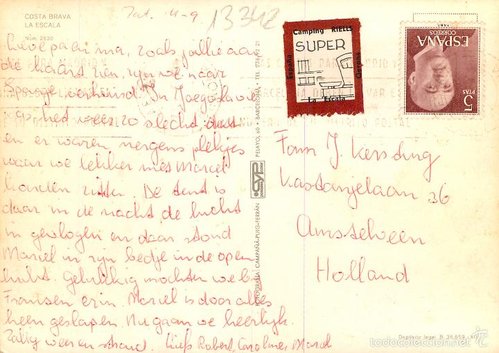 COSTA BRAVA
LA ESCALA
Núm. 2530
Zat. 4-9
13342
zoals jullie aan
de kaart zien, zijn we naar
Spanje verhuisd. In Joegoslavië
was het weer zo slecht,
en er waren nergens plekjes
waar we lekker met Marcel
konden zitten. De tent is
daar in de nacht de lucht
in gevlogen en daar stond
Marcel in zijn bedje in de open
lucht. Gelukkig mochten we bij
Fransen erin. Marcel is door alles
heen geslapen. Nu gaan we heerlijk
zon en strand. Liefs Robert, Caroline, Marcel
Camping RIELLS
SUPER
España
Gerona
La Escala
ESPAÑA
CORREOS
5
PTAS
Fam J. Kersting
Kastanjelaan 36
Amstelveen
Holland
CAMPAÑÁ PUIG-FERRÁN
BARCELONA
Depósito legal B. 
todocoleccion.net